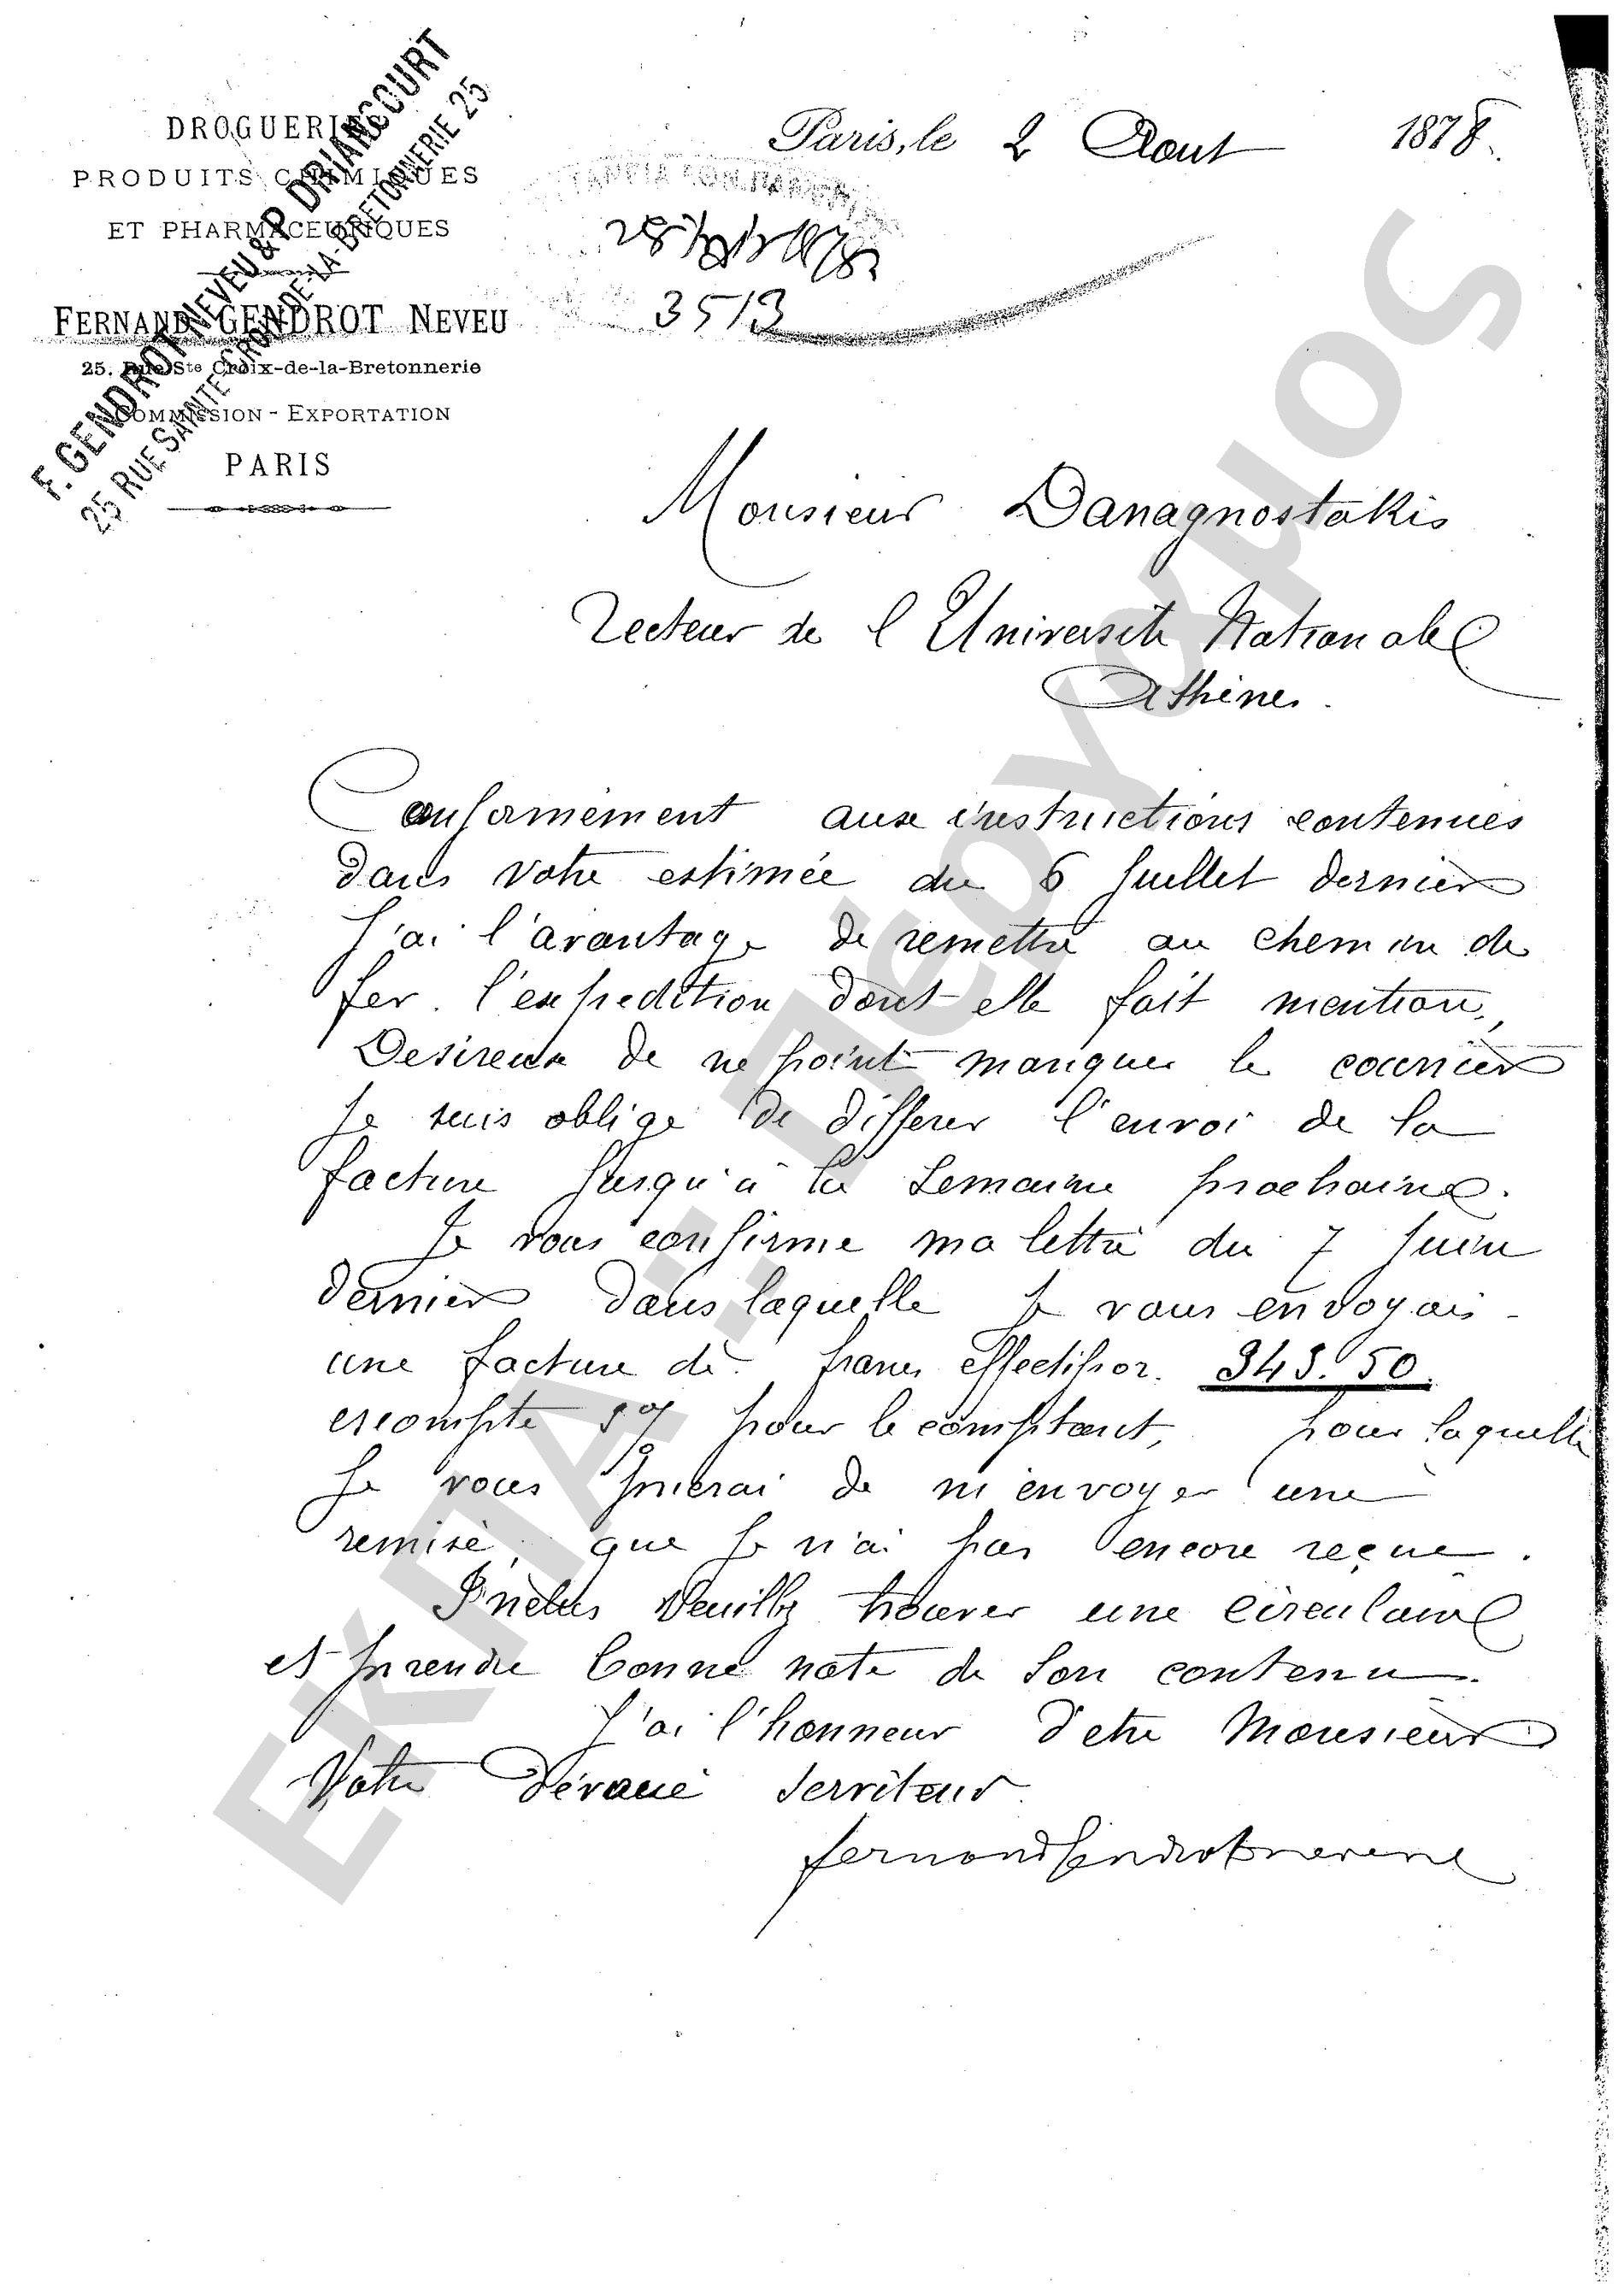 DROGUERIE
PRODUITS CHIMIQUES
ET PHARMACEUTIQUES
FERNAND GENDROT NEVEU
25. Rue Ste Croix-de-la-Bretonnerie
COMMISSION - EXPORTATION
PARIS
F. GENDROT NEVEU & P. DRIANCOURT
25 RUE SAINTE-CROIX-DE-LA-BRETONNERIE 25
Paris, le 2 Aout 1878
3513
Monsieur Danagnostakis
recteur de l Université Nationale
Athènes.
Conformement aux instructions contenues
dans votre estimée du 6 Juillet dernier
J'ai l'avantage de remettre au chemin de
fer. l'expedition dont elle fait mention,
Desireux de ne point manquer le courrier
Je suis oblige de differer l'envoi de la
facture Jusqu'à la Semaine prochaine.
Je vous confirme ma lettre du 7 Juin
dernier dans laquelle Je vous envoyais
une facture de francs effectif or. 343.50.
escompte 5% pour le comptant, pour laquelle
Je vous prierai de m'envoyer une
remise, que Je n'ai pas encore reçue.
Inclus Veuillez trouver une circulaire
et prendre bonne note de Son contenu.
J'ai l'honneur d'etre Monsieur
Votre dévoué Serviteur
Fernand Gendrot neveu
ΕΚΠΑ: Πέργαμος